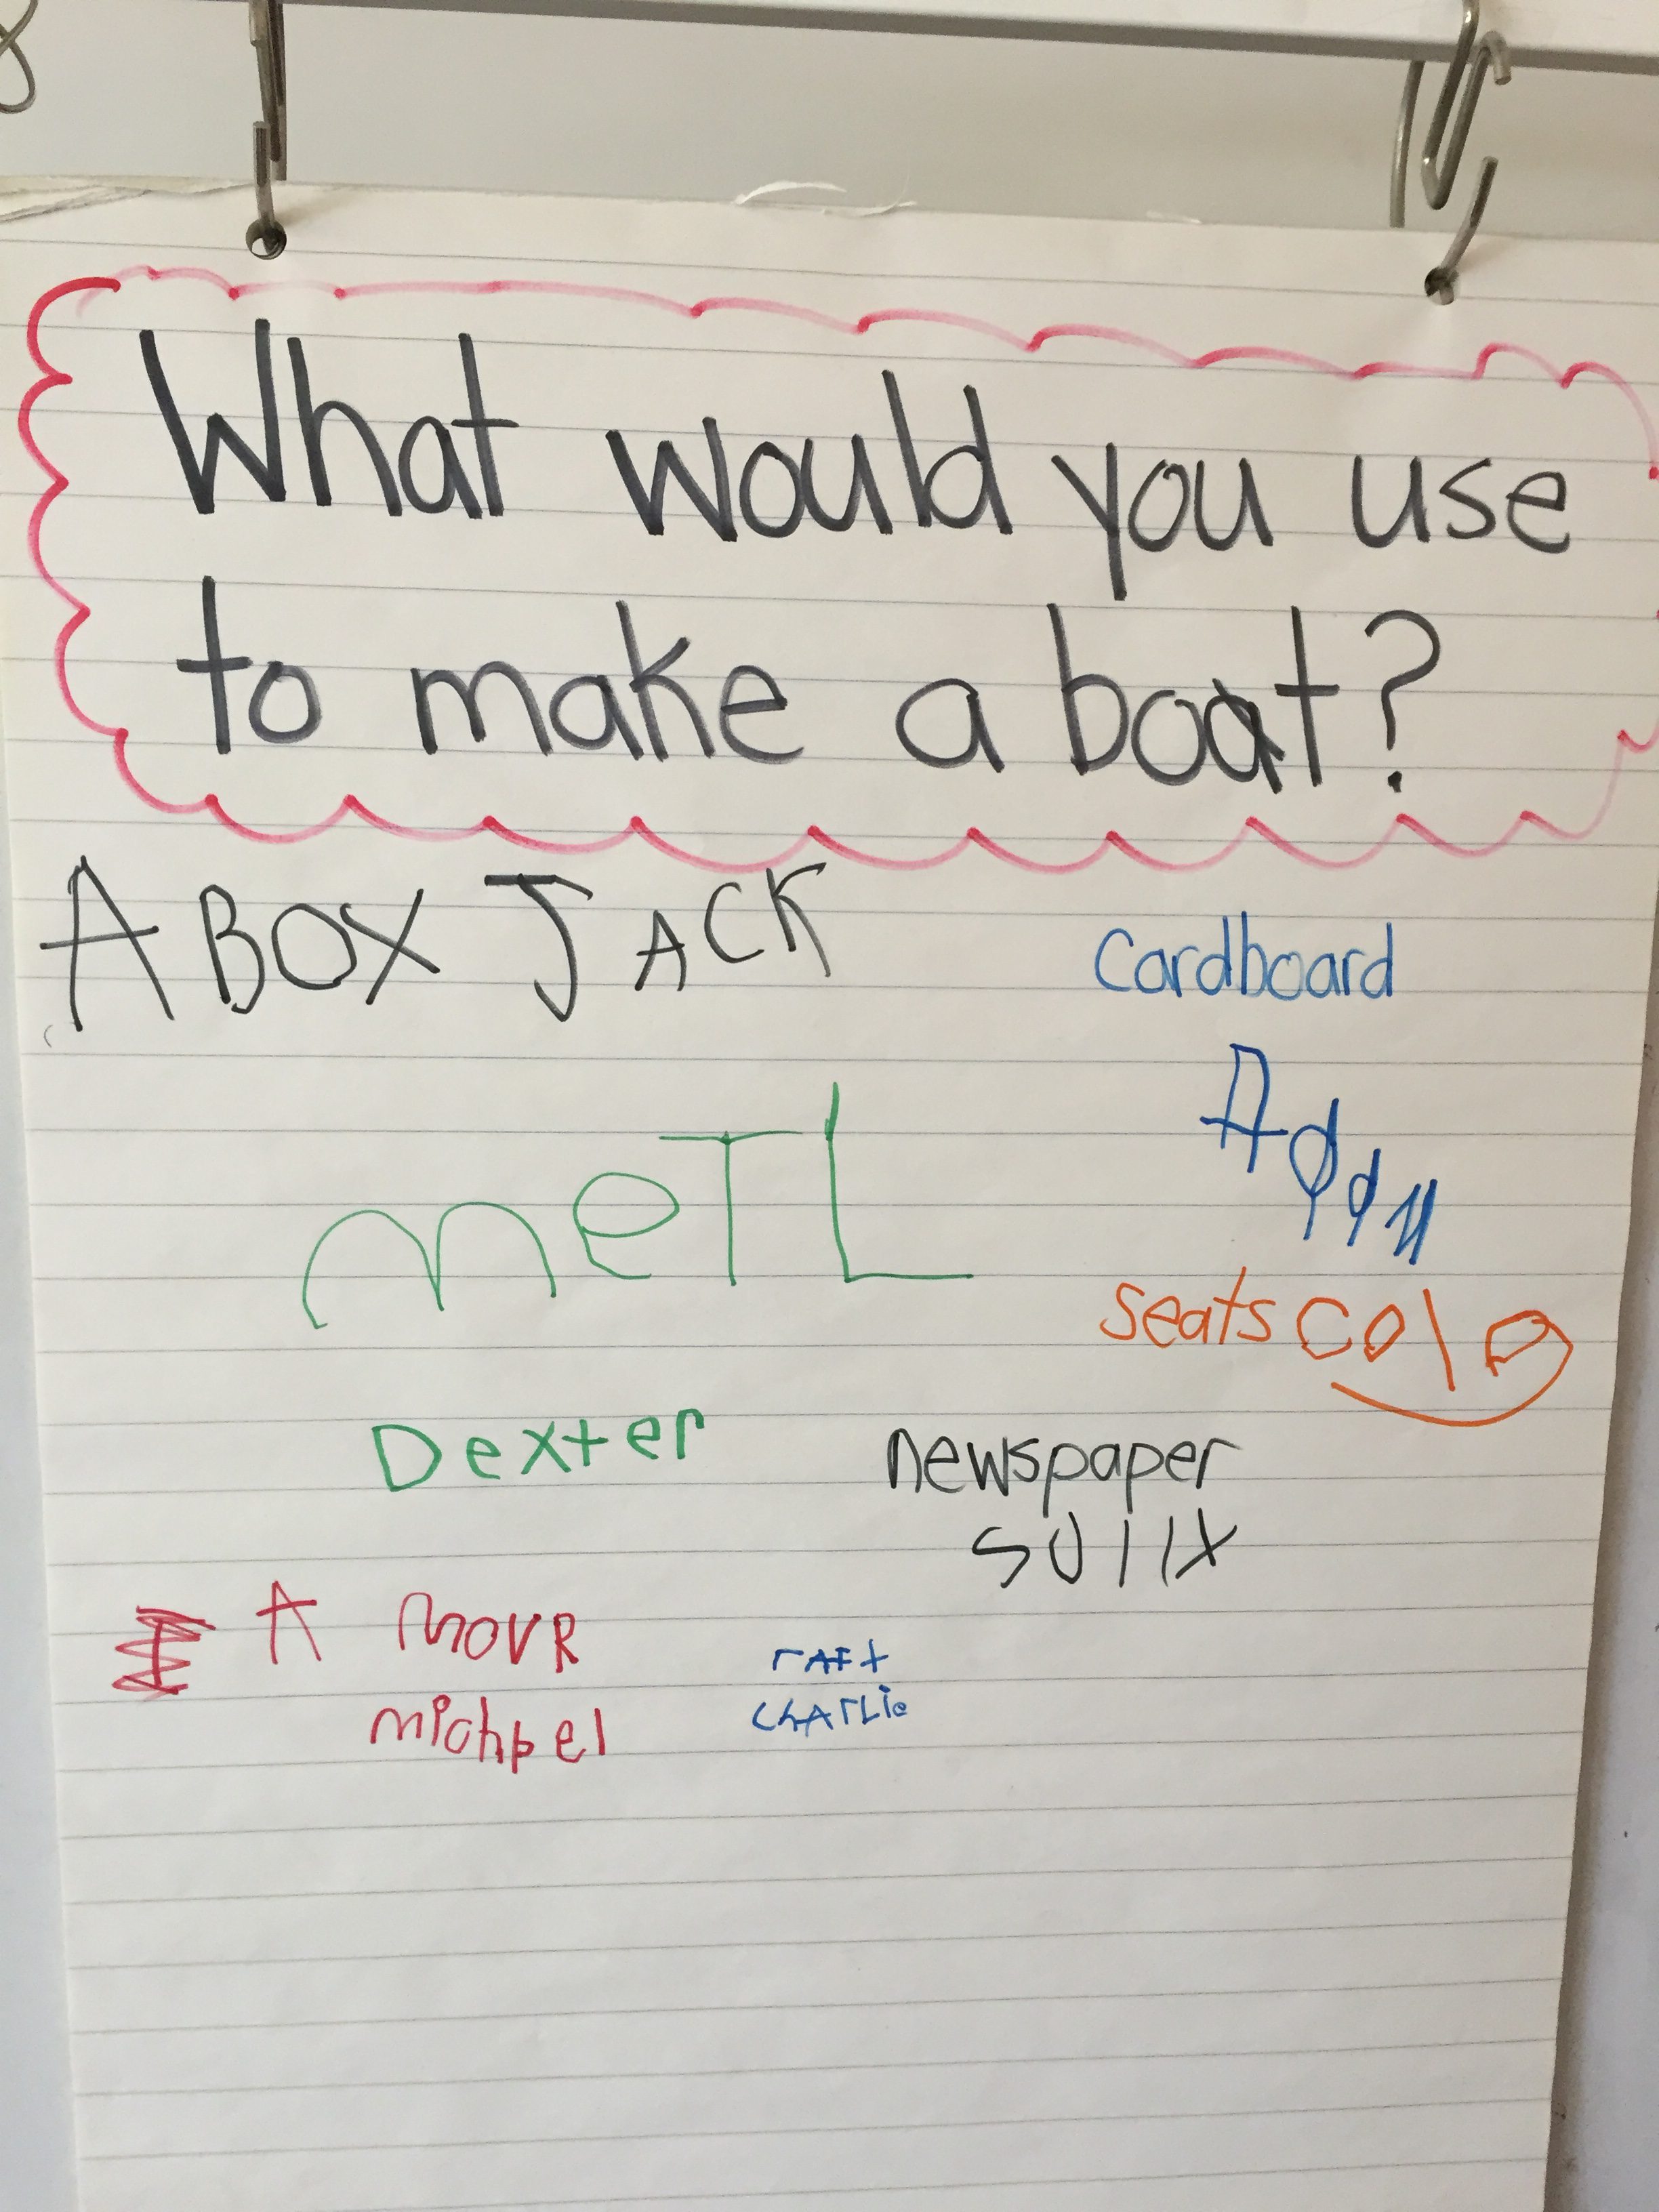 What would you use
to make a boat?
A BOX JACK
cardboard
meTL
seats cola
Dexter
newspaper
A MOVR
michael
rAFt
chArLie